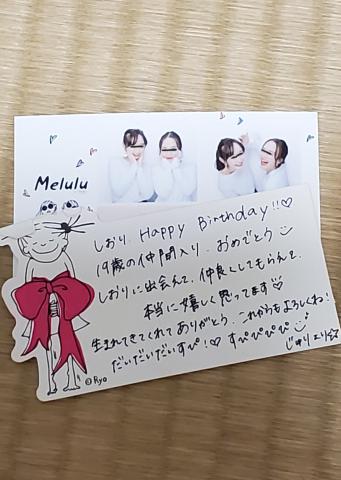 Melulu
しおり Happy Birthday!!♡
19歳の仲間入り、おめでとう
しおりに出会えて、仲良くしてもらえて、
本当に嬉しく思ってます♡
生まれてきてくれてありがとう、これからもよろしくね!
だいだいだいすぴ!♡ すぴぴぴぴ
じゅりより☆
©Ryo